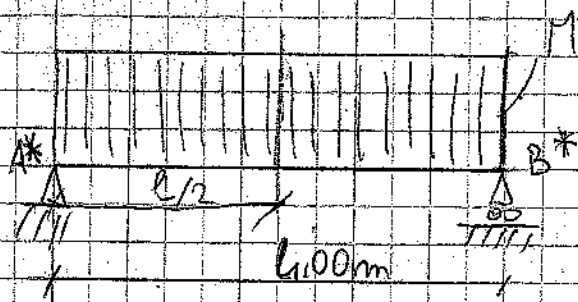 M
A* B*
l/2
4,00m